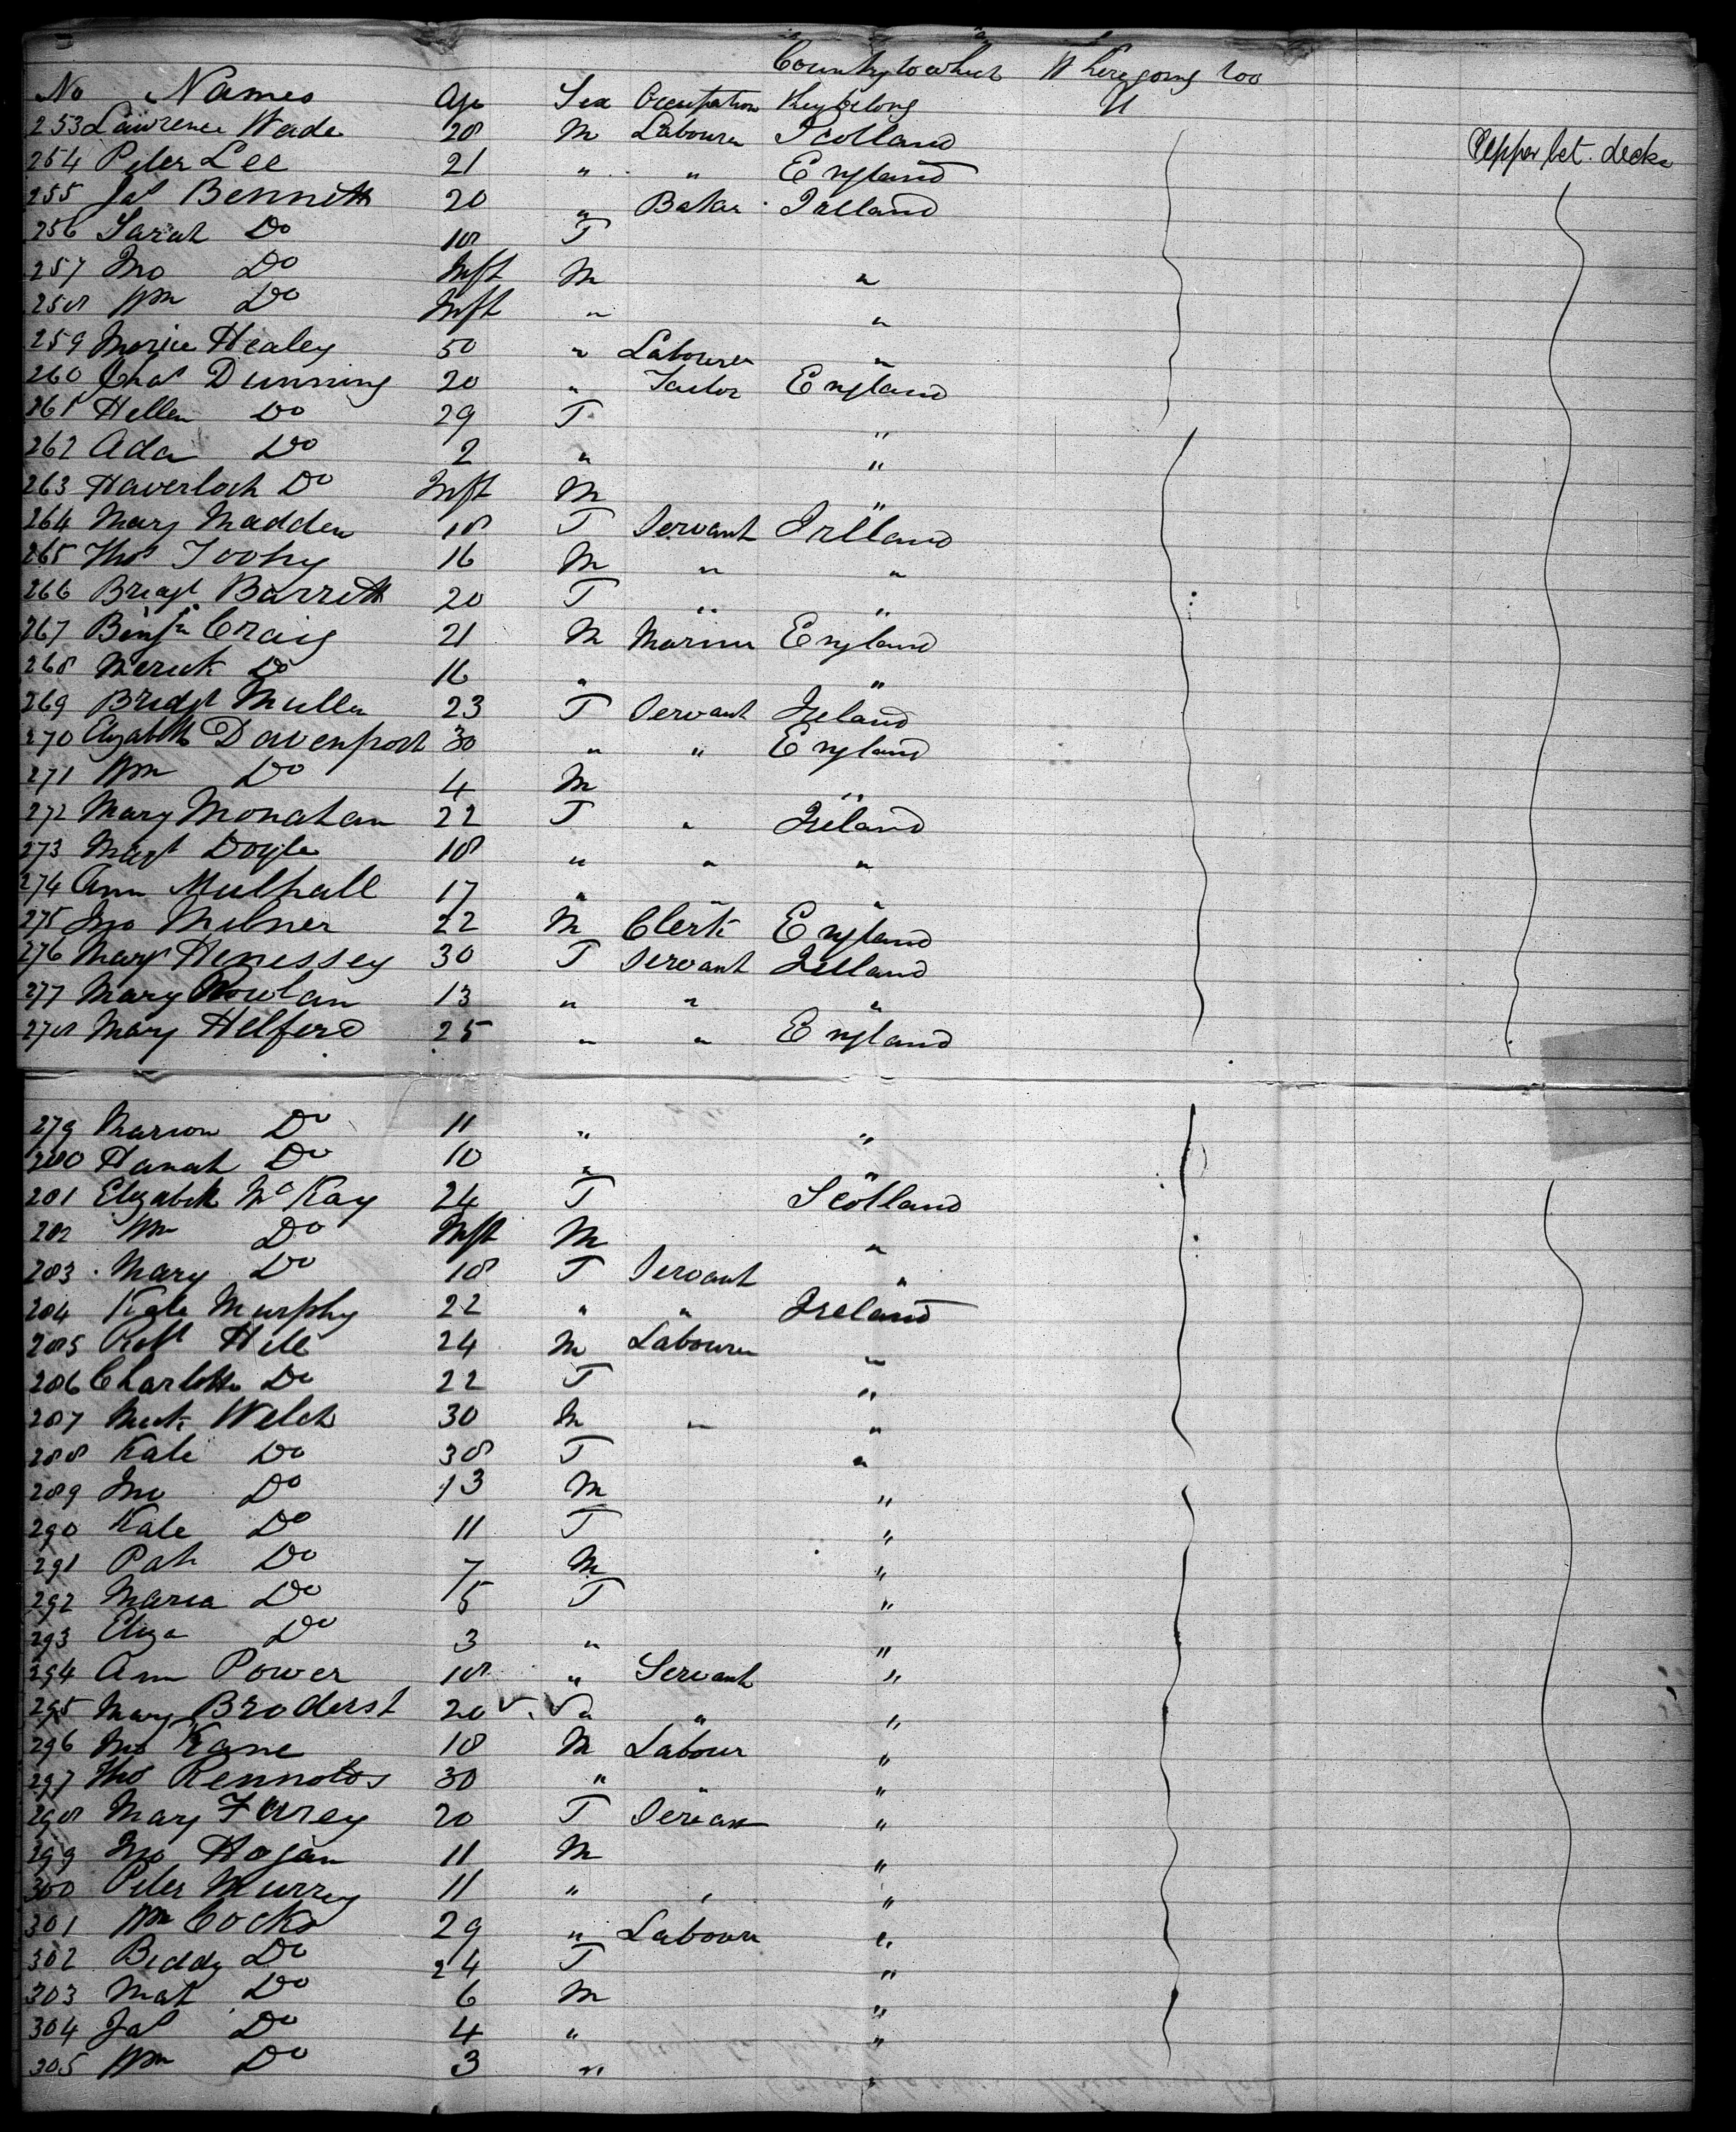 Country to which Where going too
No Names Age Sex Occupation they belong U
253 Lawrence Wade 28 M Labourer Scotland Upper bet. decks
254 Peter Lee 21 " " England
255 Jas Bennett 20 " Baker Ireland
256 Sarah Do 18 F
257 Jno Do Inft M "
258 Wm Do Inft " "
259 Morice Healey 50 " Labourer "
260 Chas Dunning 20 " Tailor England
261 Hellen Do 29 F "
262 Ada Do 2 " "
263 Haverlock Do Inft M "
264 Mary Madden 18 F Servant Ireland
265 Thos Toohy 16 M " "
266 Bridgt Barrett 20 F " "
267 Benjn Craig 21 M Mariner England
268 Merick Do 16 " "
269 Bridgt Mullen 23 F Servant Ireland
270 Elizabeth Davenport 30 " " England
271 Wm Do 4 M "
272 Mary Monahan 22 F " Ireland
273 Magt Doyle 18 " " "
274 Ann Mulhall 17 " " "
275 Jno Milner 22 M Clerk England
276 Mary Henessey 30 F Servant Ireland
277 Mary Nowlan 13 " " "
278 Mary Helferd 25 " " England
279 Marion Do 11 " "
280 Hanah Do 10 " "
281 Elizabeth McKay 24 F Scotland
282 Wm Do Inft M "
283 Mary Do 18 F Servant "
284 Kate Murphy 22 " " Ireland
285 Robt Hill 24 M Labourer "
286 Charlotte Do 22 F "
287 Mick Welch 30 M " "
288 Kate Do 38 F "
289 Jno Do 13 M "
290 Kate Do 11 F "
291 Pat Do 7 M "
292 Maria Do 5 F "
293 Eliza Do 3 " "
294 Ann Power 18 " Servant "
295 Mary Broderst 20 " " "
296 Jno Kane 18 M Labour "
297 Thos Rennolds 30 " " "
298 Mary Farey 20 F Servan "
299 Jno Hogan 11 M "
300 Peter Murrey 11 " "
301 Wm Cocks 29 " Labour "
302 Biddy Do 24 F "
303 Mat Do 6 M "
304 Jas Do 4 " "
305 Wm Do 3 " "